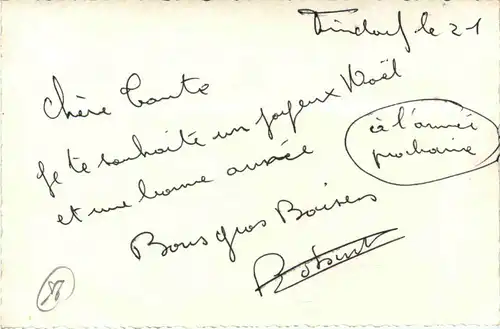 Tindouf le 21
Chère Tante
Je te souhaite un joyeux Noël
et une bonne année
à l'année
prochaine
Bons gros Baisers
Robert